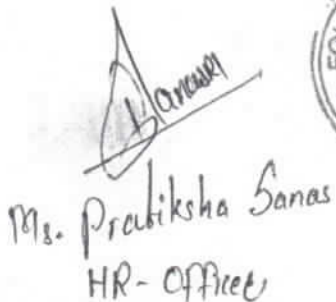 Ms. Pratiksha Sanas
HR - Officer